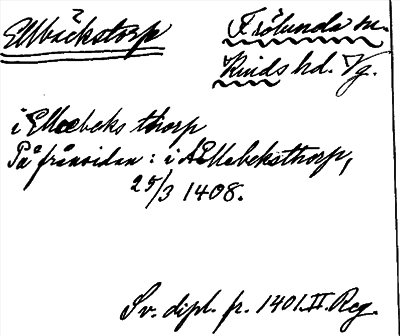 Ellbäckstorp
Frölunda sn.
Kinds hd. Vg.
i Ellebeks thorp
På frånsidan: i AEllabeksthorp,
25/3 1408.
Sv. dipl. fr. 1401. II. Reg.